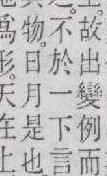 故出變例而
之不於一下言
其物日月是也
爲形天在上